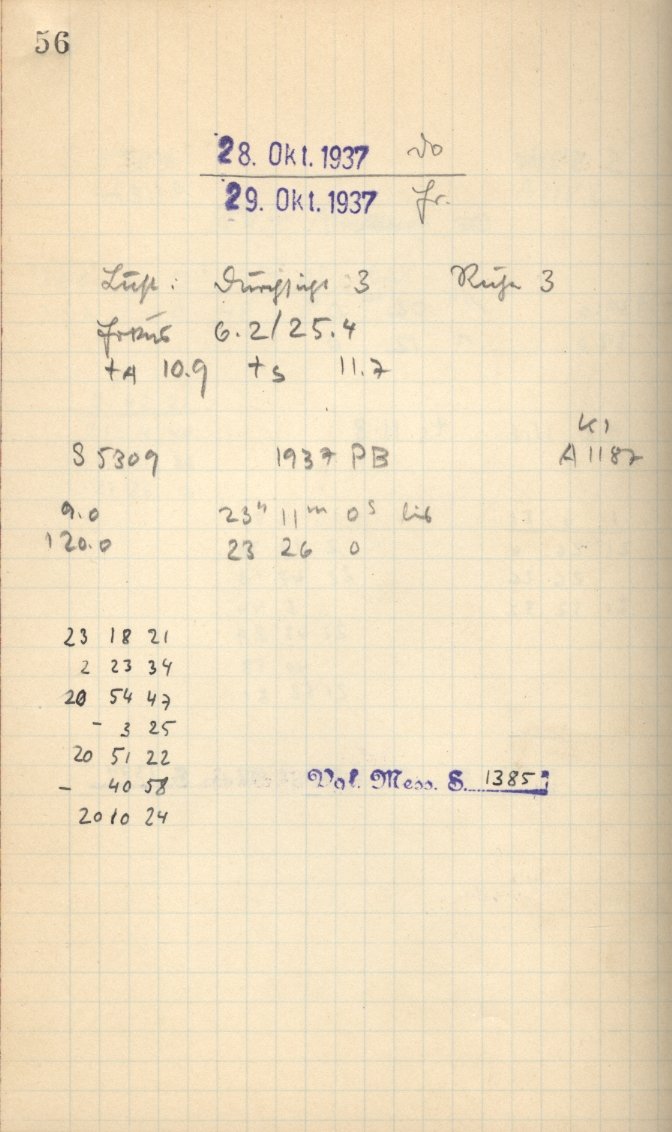 56
28. Okt. 1937 Do
29. Okt. 1937 Fr.
Luft: Durchsicht 3 Ruhe 3
Fokus 6.2/25.4
tA 10.9 tS 11.7
K1
S 5309 1937 PB A 1187
9.0 23h 11m 0s bis
120.0 23 26 0
23 18 21
2 23 34
20 54 47
- 3 25
20 51 22
- 40 58
20 10 24
Vgl. Mess. S. 1385